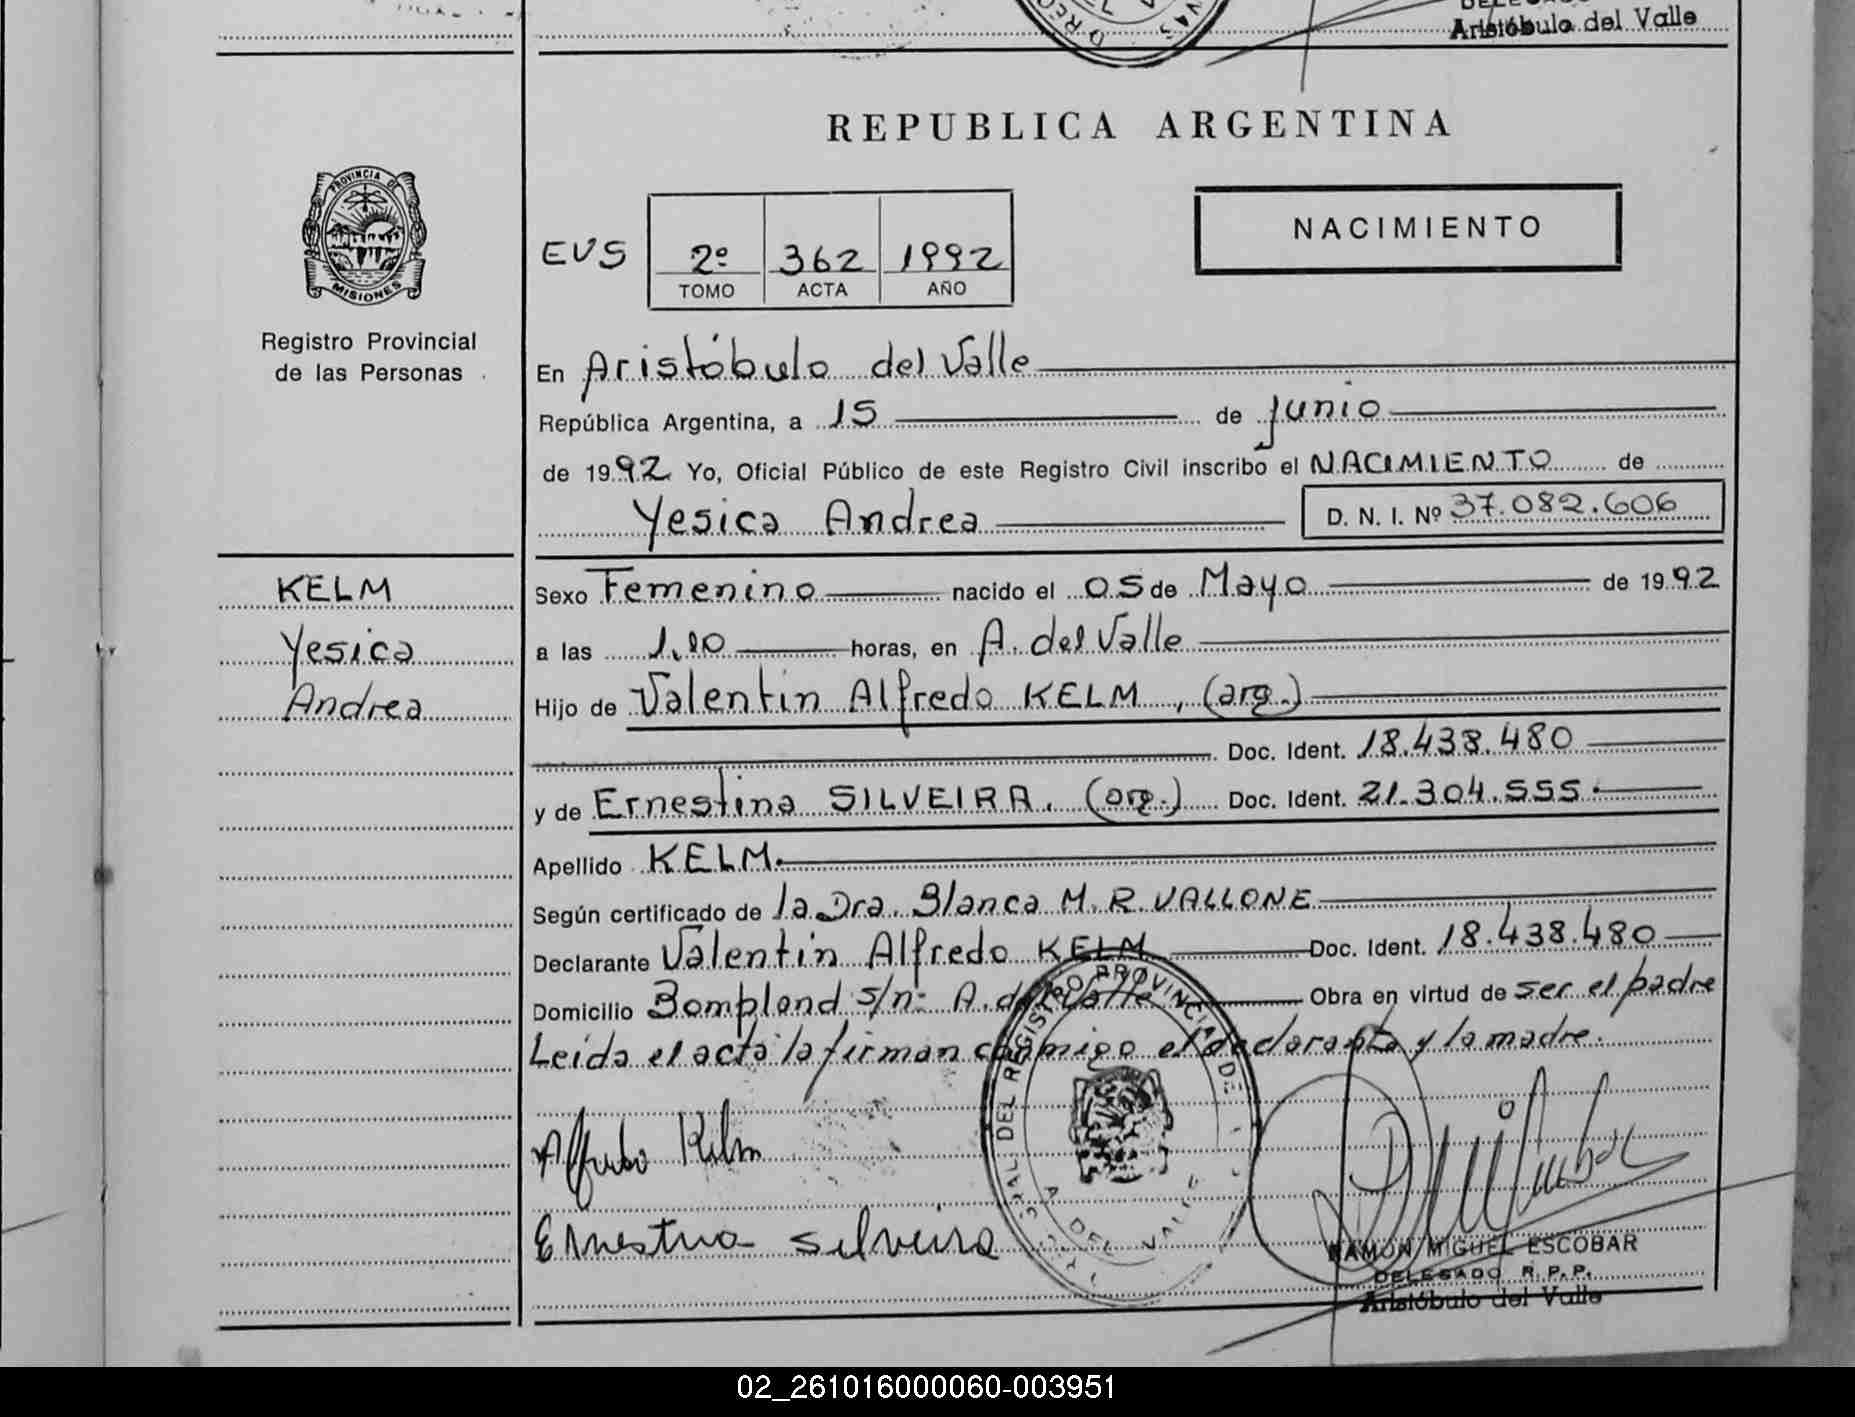 Aristóbulo del Valle
REPUBLICA ARGENTINA
PROVINCIA DE
MISIONES
Registro Provincial
de las Personas
NACIMIENTO
EVS 2º 362 1992
TOMO ACTA AÑO
En Aristóbulo del Valle
República Argentina, a 15 de junio
de 1992 Yo, Oficial Público de este Registro Civil inscribo el NACIMIENTO de
Yesica Andrea D. N. I. Nº 37.082.606
KELM
Yesica
Andrea
Sexo Femenino nacido el 05 de Mayo de 1992
a las horas, en A. del Valle
Hijo de Valentin Alfredo KELM, (arg.)
Doc. Ident. 18.438.480
y de Ernestina SILVEIRA. (arg.) Doc. Ident. 21.304.555.
Apellido KELM.
Según certificado de la Dra. Blanca M. R. VALLONE
Declarante Valentin Alfredo KELM Doc. Ident. 18.438.480
Domicilio Bompland s/nº A. del Valle Obra en virtud de ser el padre
Leída el acta la firman conmigo el declarante y la madre.
Alfredo Kelm
Ernestina Silveira
DEL REGISTRO PROVINCIAL DE
A DEL VALLE
RAMON MIGUEL ESCOBAR
DELEGADO R. P. P.
Aristóbulo del Valle
02_261016000060-003951